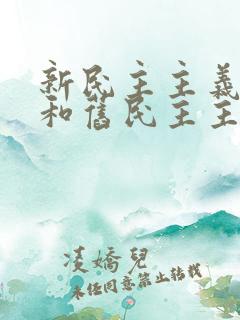 新民主主義
和舊民主主
凌嬌兒
未经同意禁止转载